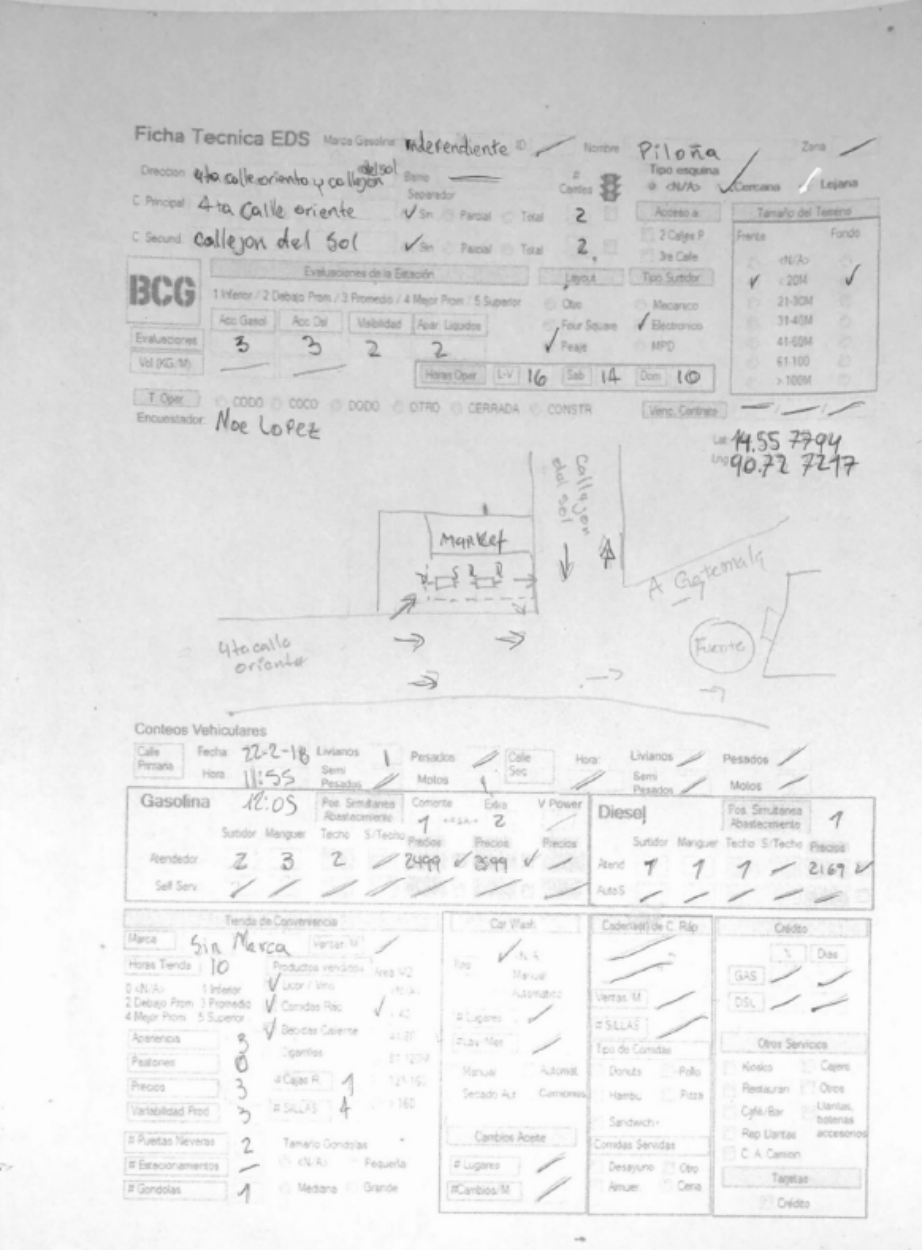 Ficha Tecnica EDS Marca Gasolina Independiente ID Nombre Piloña Zona
Direccion 4ta calle oriente y callejon del sol Bomo # Carriles Tipo esquina <N/A> Cercana Lejana
C. Principal 4ta Calle oriente Separador Sin Parcial Total 2 Acceso a Tamaño del Terreno
C. Secund. Callejon del Sol Sin Parcial Total 2 2 Calles P Frente Fondo
3ra Calle <N/A>
BCG Evaluaciones de la Estación Layout Tipo Surtidor < 20M
1 Inferior / 2 Debajo Prom / 3 Promedio / 4 Mejor Prom / 5 Superior Otro Mecanico 21-30M
Acc Gasol Acc Dsl Visibilidad Apar. Liquidos Four Square Electronico 31-40M
Evaluaciones 3 3 2 2 Peaje MPD 41-60M
Vol (KG/M) 61-100
Horas Oper L-V 16 Sab 14 Dom 10 > 100M
T. Oper CODO COCO DODO OTRO CERRADA CONSTR Venc. Contrato
Encuestador: Noe Lopez
Lat 14.55 7794
Lng 90.72 7217
Callejon del sol
Market
A Guatemala
4ta calle oriente
Fuente
Conteos Vehiculares
Calle Primaria Fecha 22-2-18 Livianos Pesados Calle Sec Hora Livianos Pesados
Hora 11:55 Semi Pesados Motos Semi Pesados Motos
Gasolina 12:05 Pos. Simultanea Abastecimiento Corriente 1 Extra 2 V Power Diesel Pos. Simultanea Abastecimiento 1
Surtidor Manguer Techo S/Techo Precios Precios Precios Surtidor Manguer Techo S/Techo Precios
Atendedor 2 3 2 2499 2599 Atend 1 1 1 2169
Self Serv Auto S
Tienda de Conveniencia Car Wash Cadena(s) de C. Ráp Crédito
Marca Sin Marca Ventas M N/A % Dias
Horas Tienda 10 Productos vendidos Area M2 Manual GAS
0 <N/A> 1 Inferior Licor / Vino <N/A> Automático Ventas/M DSL
2 Debajo Prom 3 Promedio Comidas Rác < 40 # Lugares # SILLAS
4 Mejor Prom 5 Superior Bebidas Caliente # Lav. Mes Tipo de Comidas Otros Servicios
Apariencia 3 Cigarrillos Manual Automat Donuts Pollo Kiosko Cajero
Peatones 0 # Cajas R. 1 Secado Aut Camiones Hambu Pizza Restauran Otros
Precios 3 Sandwich Café/Bar Llantas, baterias accesorios
Variabilidad Prod 3 # SILLAS 4 > 160 Comidas Servidas Rep Llantas
# Puertas Neveras 2 Tamaño Gondolas Cambios Aceite Desayuno Otro C. A. Camion
# Estacionamientos <N/A> Pequeña # Lugares Almuer Cena Tarjetas
# Gondolas 1 Mediana Grande #Cambios/M Crédito